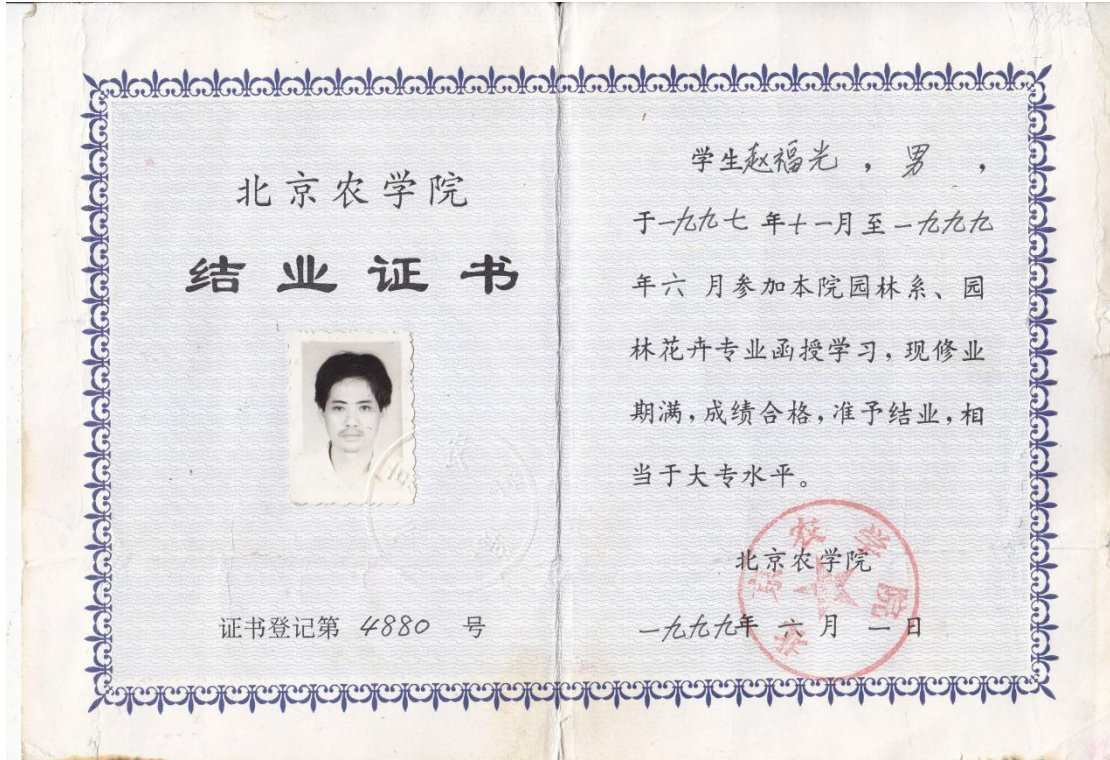 北京农学院
结业证书
证书登记第 4880 号
学生赵福光，男，
于一九九七年十一月至一九九九
年六 月参加本院园林系、园
林花卉专业函授学习，现修业
期满，成绩合格，准予结业，相
当于大专水平。
北京农学院
一九九九年 六 月 一 日
北京农学院